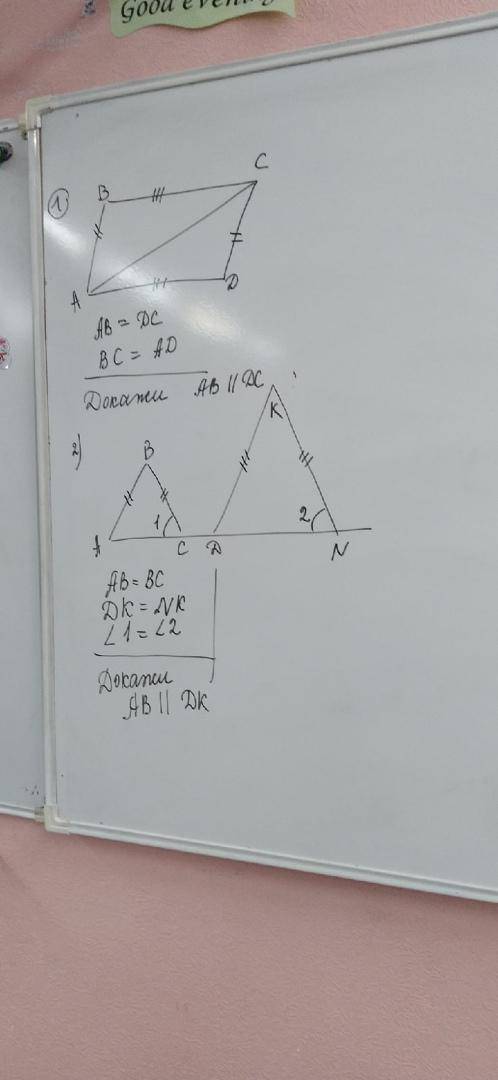 Good evening
1
B
C
A
D
AB = DC
BC = AD
Докажи AB || DC
2)
B
K
1
2
A
C
D
N
AB = BC
DK = NK
∠1 = ∠2
Докажи
AB || DK